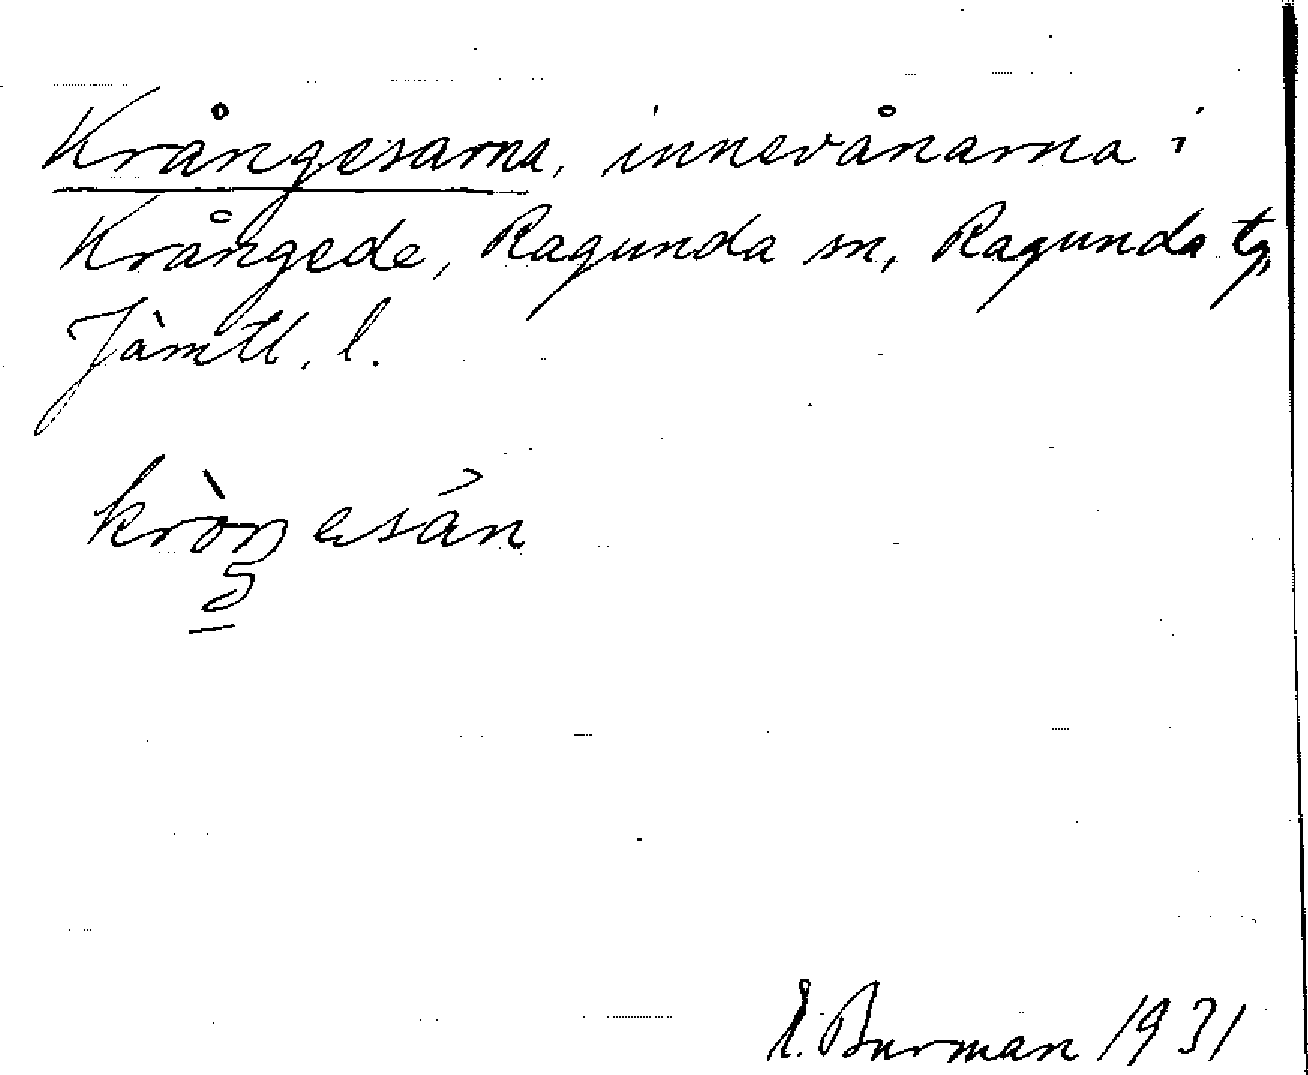 Krångesarna, innevånarna i
Krångede, Ragunda sn, Ragunda tg,
Jämtl. l.
kròŋesán
E. Burman 1931